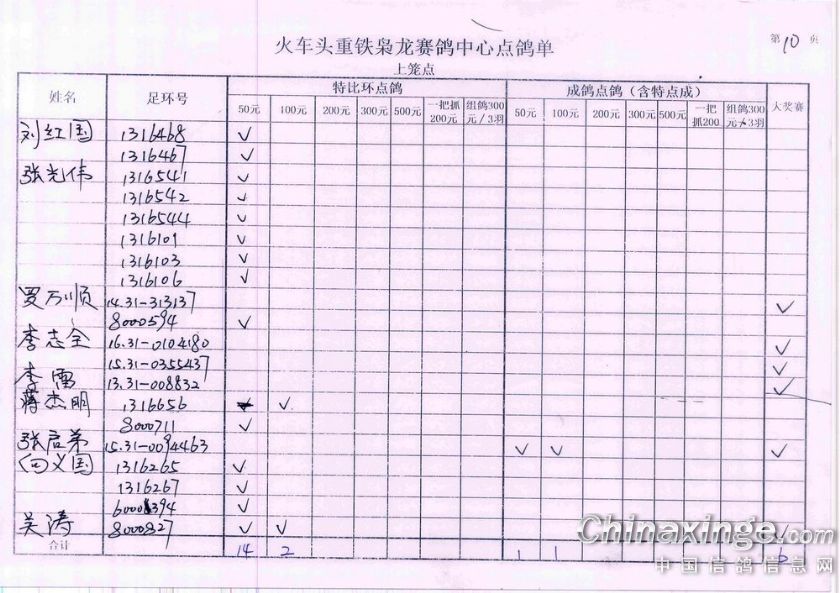 第10页
火车头重铁枭龙赛鸽中心点鸽单
上笼点
姓名 足环号 特比环点鸽 成鸽点鸽（含特点成） 大奖赛
50元 100元 200元 300元 500元 一把抓200元 组鸽300元/3羽 50元 100元 200元 300元 500元 一把抓200 组鸽300元/3羽
刘红国 1316468 ✓
1316467 ✓
张光伟 1316541 ✓
1316542 ✓
1316544 ✓
1316101 ✓
1316103 ✓
1316106 ✓
贾万顺 14.31-313137 ✓
8000594 ✓
李志全 16.31-0104180 ✓
15.31-0355437 ✓
李雷 13.31-008832 ✓
蒋杰明 1316656 ✓ ✓
8000711 ✓
张启弟 15.31-0094463 ✓ ✓ ✓
向义国 1316265 ✓
1316267 ✓
6000394 ✓
吴涛 8000827 ✓ ✓ ✓
合计 14 2 1 1 6
Chinaxinge.com
中国信鸽信息网